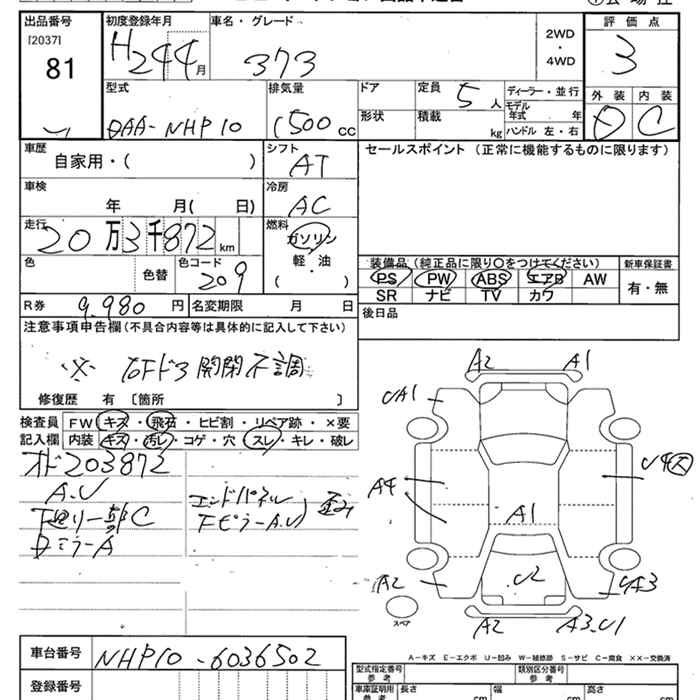 出品番号 初度登録年月 車名・グレード 2WD・4WD 評価点
[2037] 81 H24 4月 373 3
型式 排気量 ドア 定員 5人 ディーラー・並行 外装 内装
DAA-NHP10 1500cc 形状 積載 kg モデル年式 年 ハンドル 左・右 D C
車歴 自家用・( ) シフト AT セールスポイント (正常に機能するものに限ります)
車検 年 月( 日) 冷房 AC
走行 20万3千872km 燃料 ガソリン・軽・油 ( )
色 色替 色コード 209
装備品 (純正品に限り○をつけてください) 新車保証書
PS PW ABS エアB AW 有・無
SR ナビ TV カワ
R券 9,980円 名変期限 月 日 後日品
注意事項申告欄(不具合内容等は具体的に記入して下さい)
※ 右Fドア開閉不調
修復歴 有 [箇所 ]
検査員 FW キズ・飛石・ヒビ割・リペア跡・×要
記入欄 内装 キズ・汚レ・コゲ・穴・スレ・キレ・破レ
オド203872
A.U
下廻り一部C
Dミラー A
エンドパネル
FピラーA.U
歪み
A2 A1
UA1
A4
A1
U2
A2 UA3
スペア
A2 A3.U1
A-キズ E-エクボ U-凹み W-補修跡 S-サビ C-腐食 ××-交換済
車台番号 NHP10-6036502
型式指定番号 参考 類別区分番号 参考
登録番号
車庫証明用 参考 長さ cm 幅 cm 高さ cm